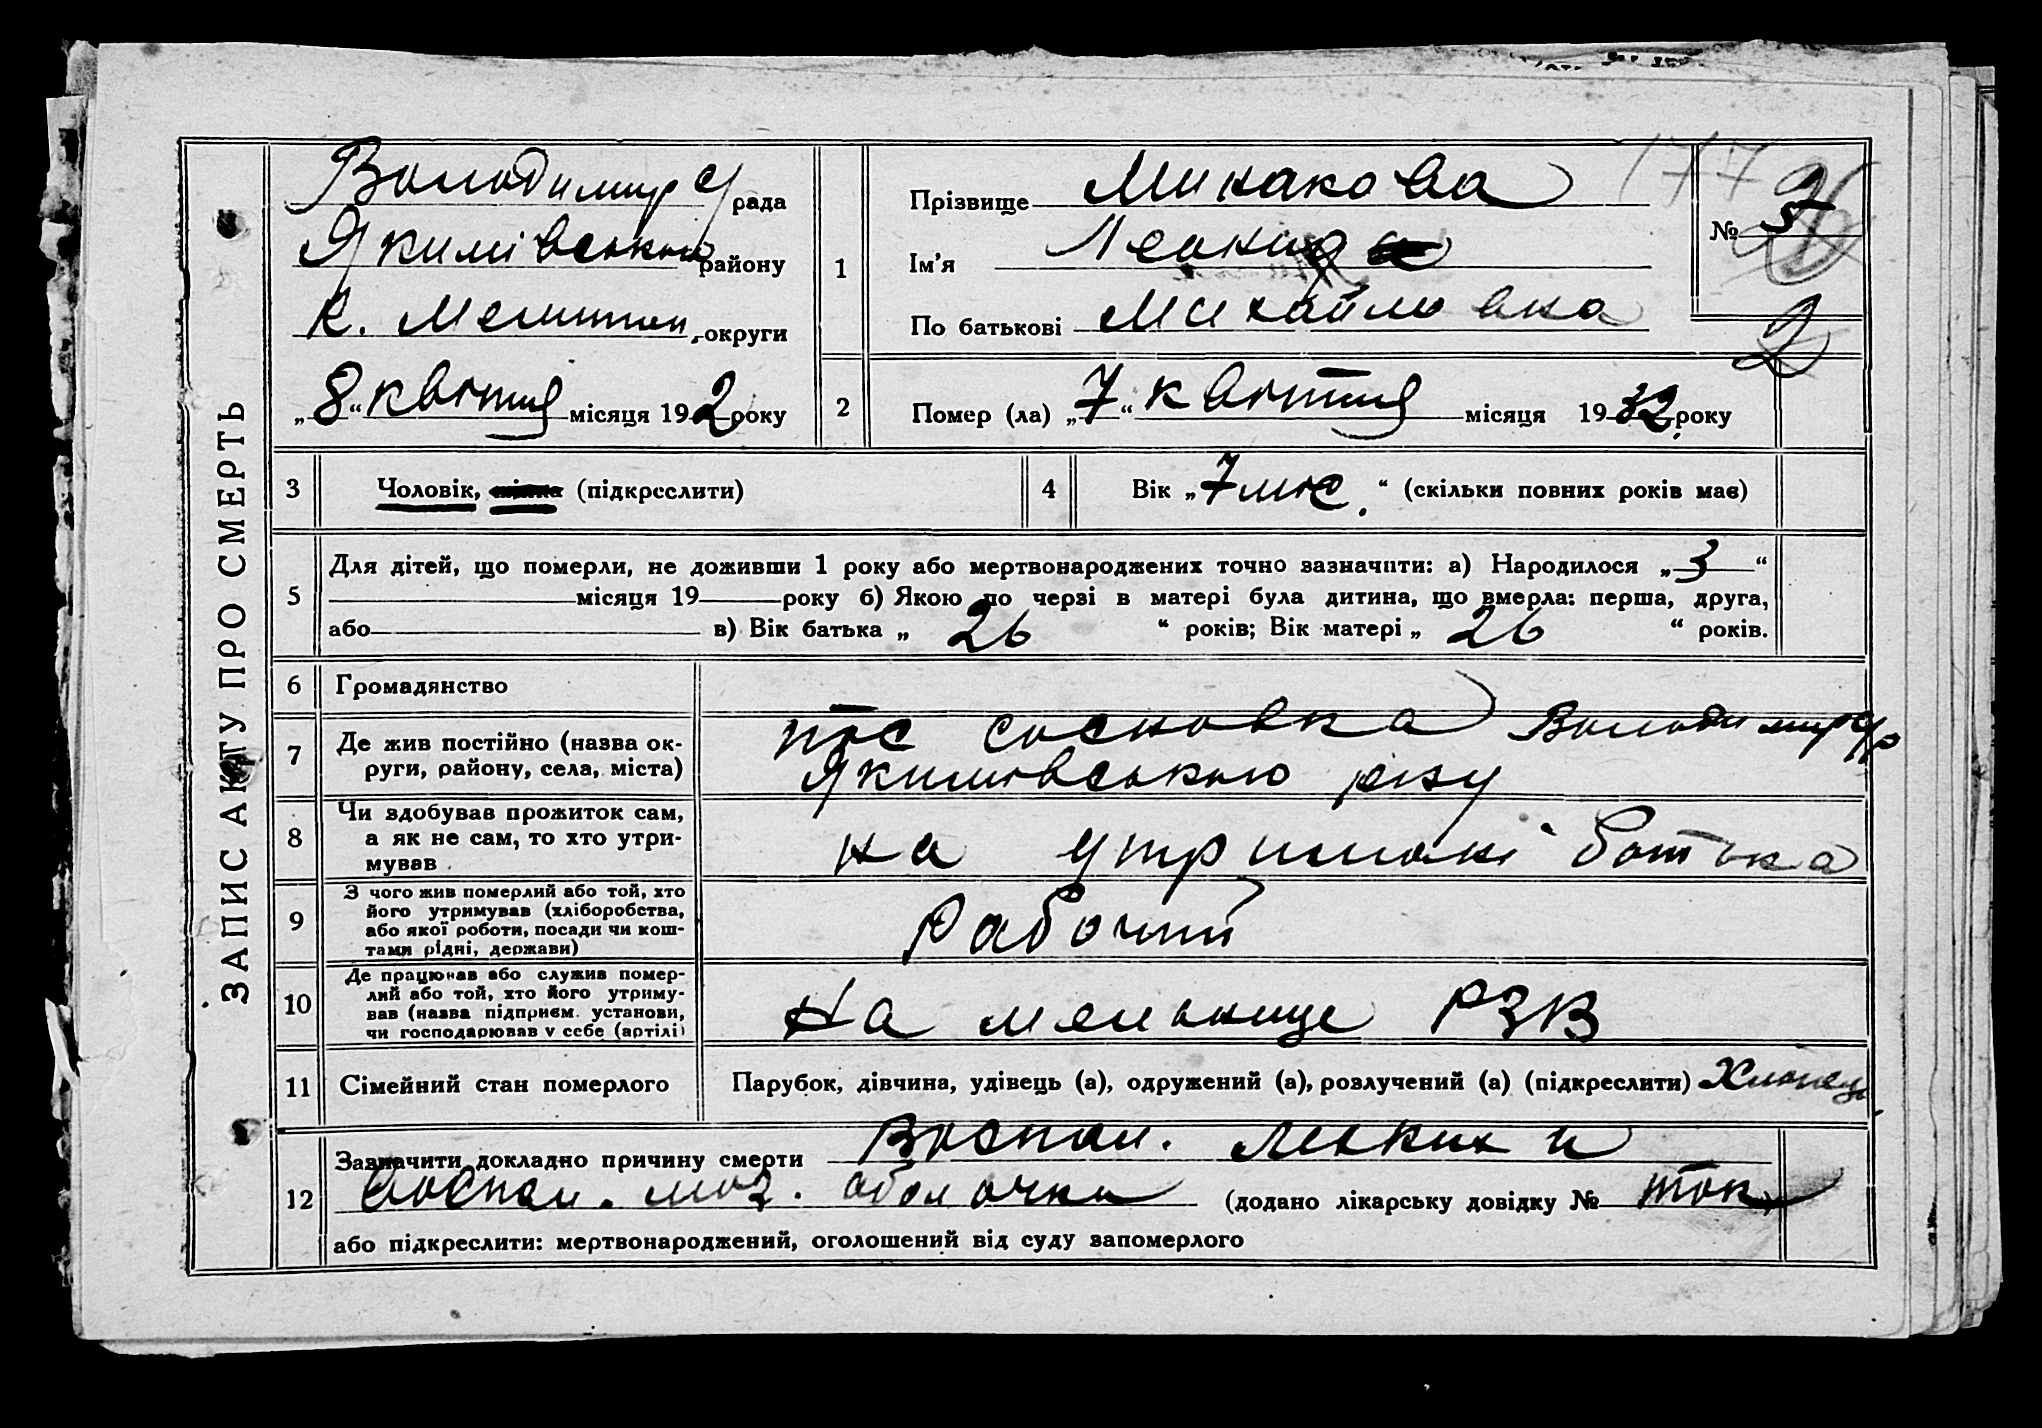 ЗАПИС АКТУ ПРО СМЕРТЬ
Володимир рада
Якимівського району
К. Мелитоп. округи
„8“ квітня місяця 192 року
1
Прізвище Минакова
Ім'я Леонид
По батькові Михайловна
177
№
2
2
Помер (ла) „7“ квітня місяця 1932 року
3
Чоловік, жінка (підкреслити)
4
Вік „7 міс.“ (скільки повних років має)
5
Для дітей, що померли, не доживши 1 року або мертвонароджених точно зазначити: а) Народилося „3“
місяця 19 року б) Якою по черзі в матері була дитина, що вмерла: перша, друга,
або в) Вік батька „26“ років; Вік матері „26“ років.
6
Громадянство
7
Де жив постійно (назва ок-
руги, району, села, міста)
пос сосновка Володимир с/р
Якимовського р-ну
8
Чи здобував прожиток сам,
а як не сам, то хто утри-
мував
на утриманні батька
9
З чого жив померлий або той, хто
його утримував (хліборобства,
або якої роботи, посади чи кош-
тами рідні, держави)
Рабочий
10
Де працював або служив помер-
лий або той, хто його утриму-
вав (назва підприєм. установи,
чи господарював у себе (артілі)
На мельнице РЗВ
11
Сімейний стан померлого
Парубок, дівчина, удівець (а), одружений (а), розлучений (а) (підкреслити) Хлопець
12
Зазначити докладно причину смерти Воспал. легких и
воспал. моз. оболочки (додано лікарську довідку №
або підкреслити: мертвонароджений, оголошений від суду запомерлого